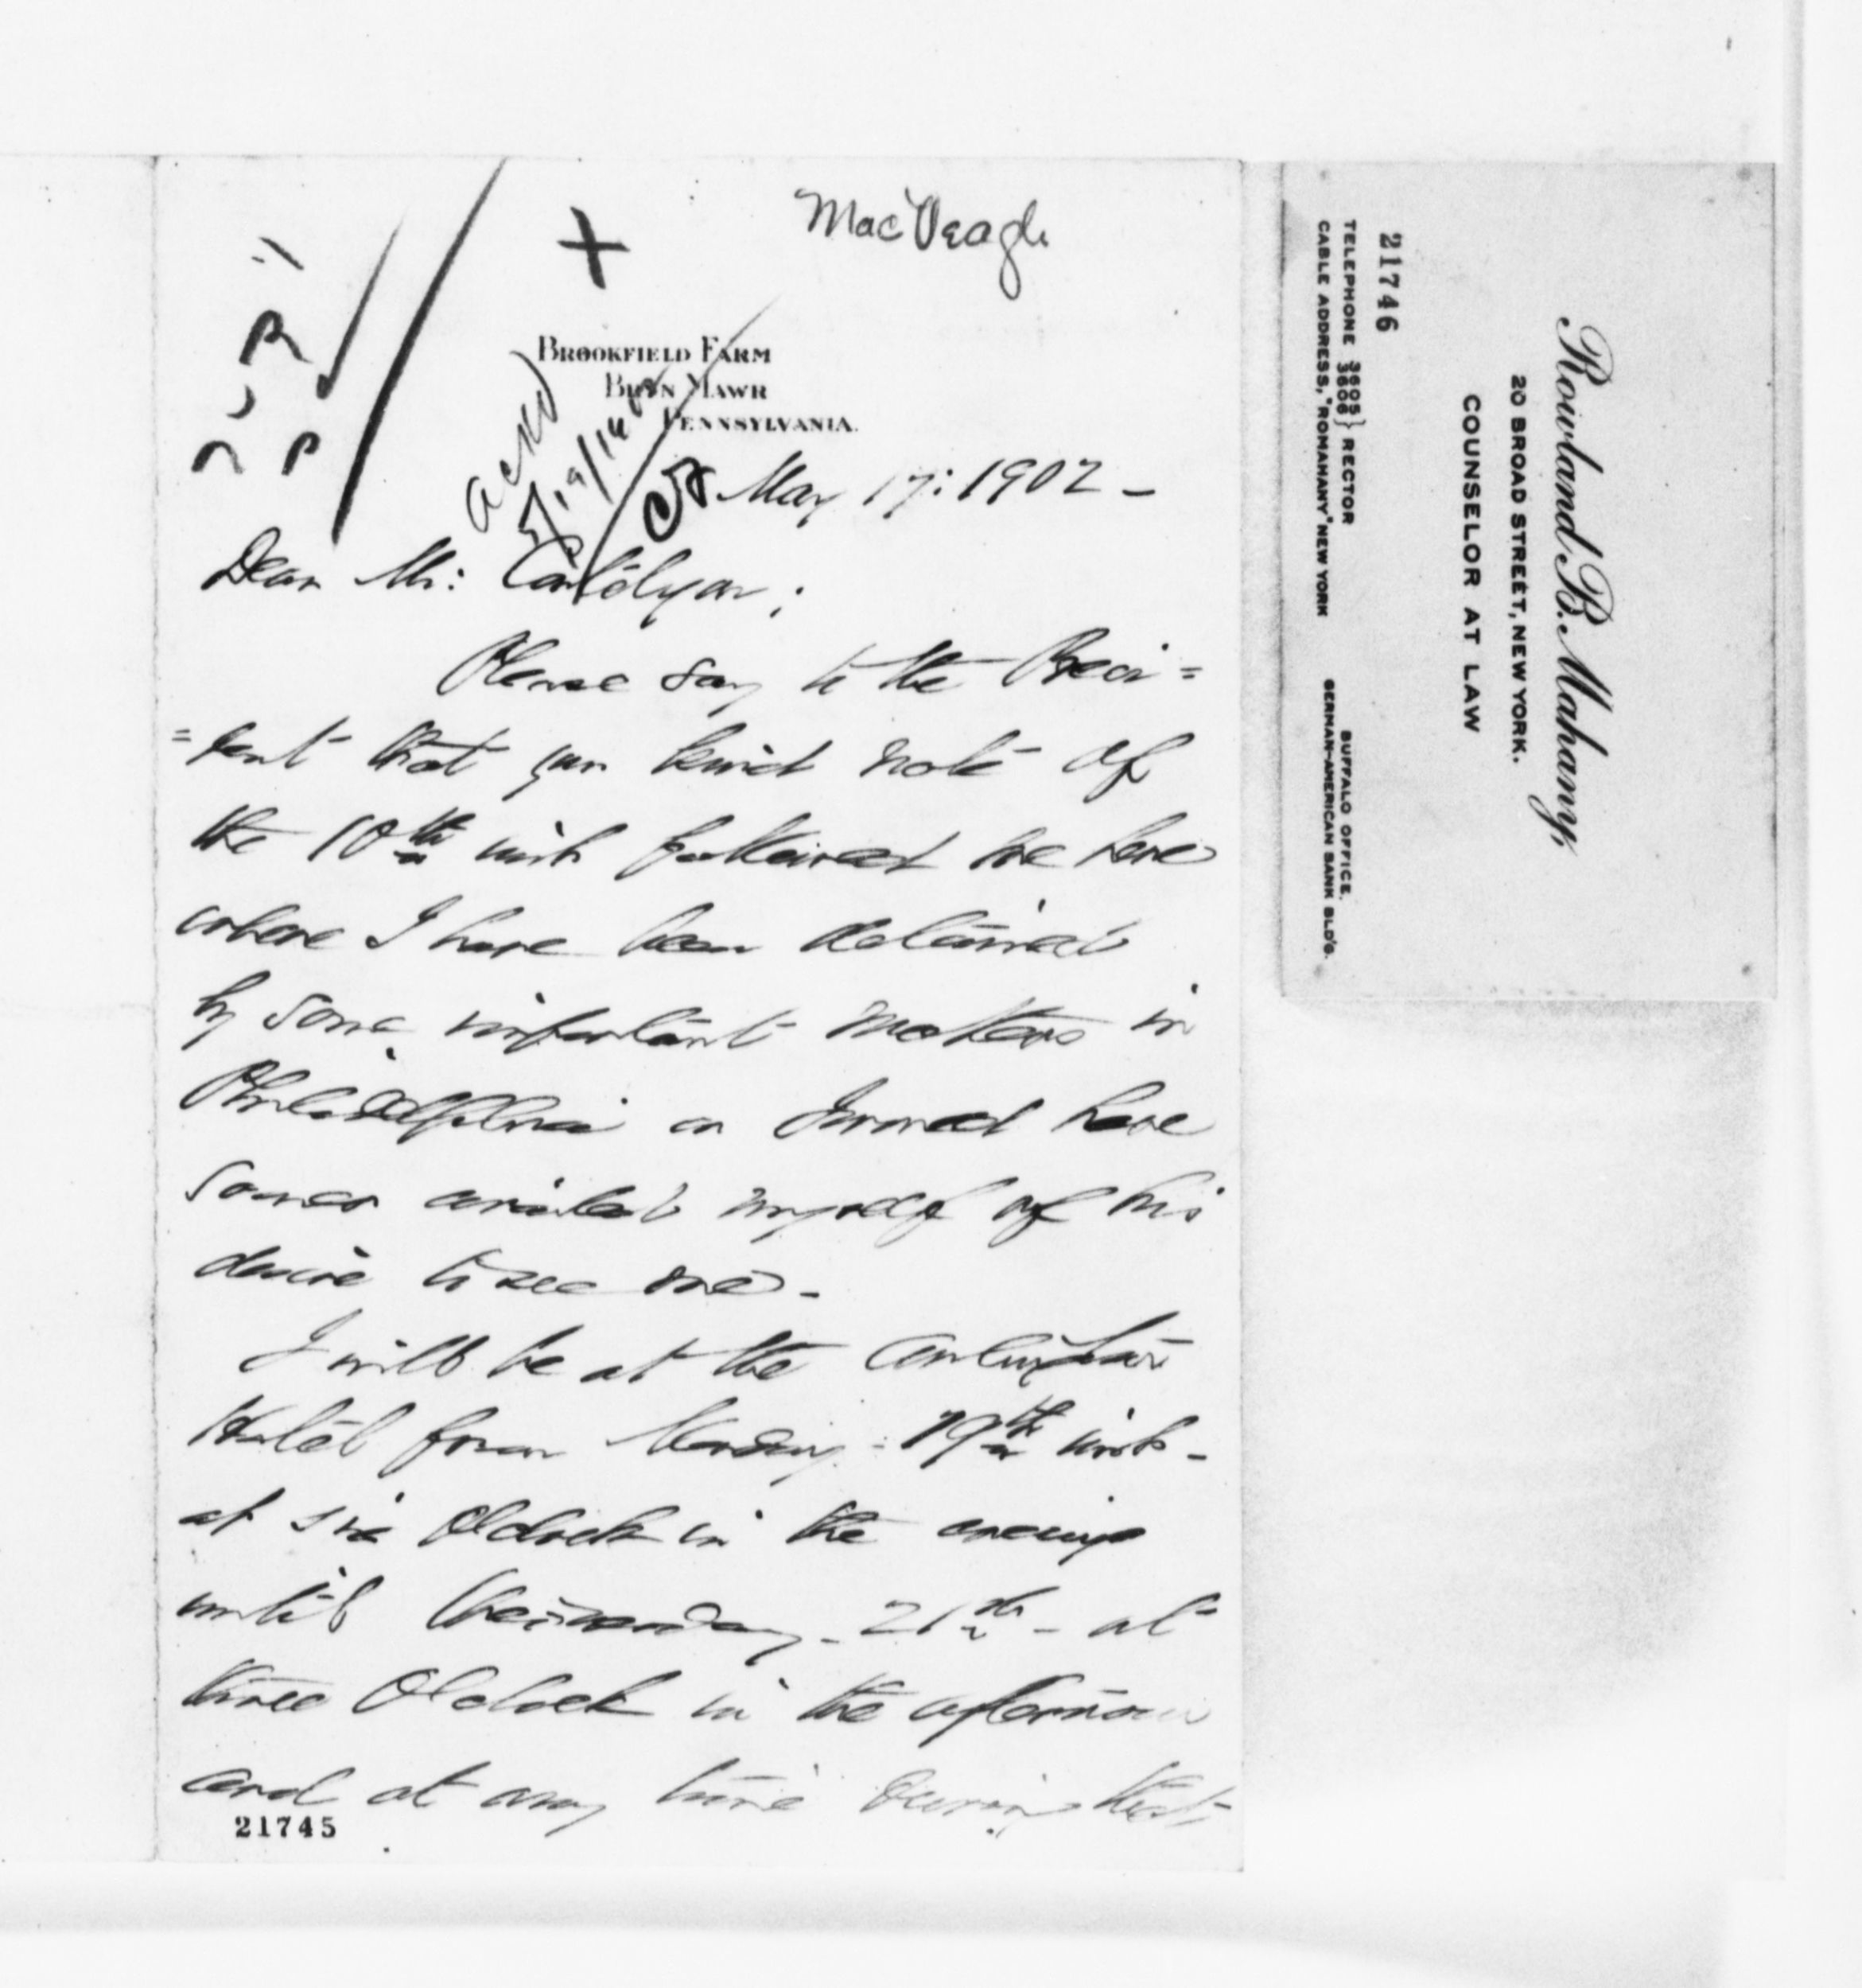 MacVeagh
Brookfield Farm
Bryn Mawr
Pennsylvania.
Ackd
5/19/1902
May 17: 1902 -
Dear Mr:
Please say to the Presi=
=dent that your kind note of
the 10th inst followed me here
where I have been detained
by some important matters in
Philadelphia or I would have
sooner availed myself of his
desire to see me -
I will be at the Arlington
Hotel from Monday - 19th inst -
at six O'clock in the evening
until Wednesday - 21st - at
three O'clock in the afternoon
and at any time during that
21745
Rowland B. Mahany,
20 BROAD STREET, NEW YORK.
COUNSELOR AT LAW
21746
TELEPHONE 3605 3606 } RECTOR
CABLE ADDRESS, "ROMAHANY" NEW YORK
BUFFALO OFFICE.
GERMAN-AMERICAN BANK BLD'G.